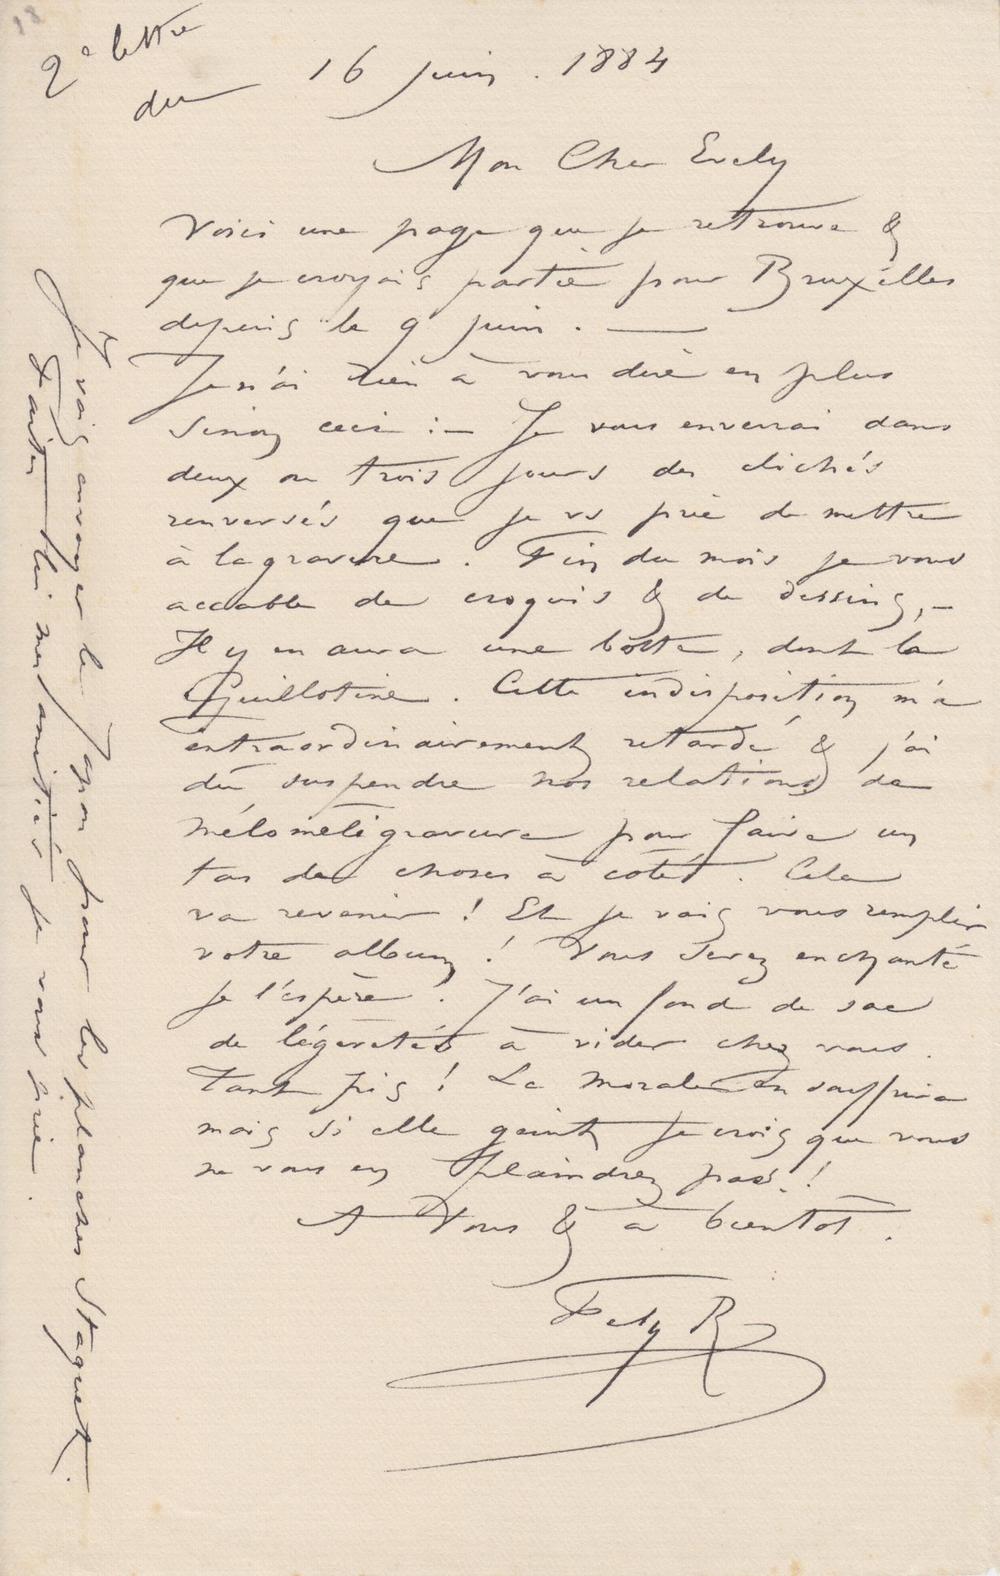 18
2e lettre
du 16 juin . 1884
Mon Cher Evely
Voici une page que je retrouve &
que je croyais partie pour Bruxelles
depuis le 9 juin . —
Je n'ai rien à vous dire en plus
sinon ceci : — Je vous enverrai dans
deux ou trois jours des clichés
renversés que je vs prie de mettre
à la gravure . Fin du mois je vous
accable de croquis & de dessins, –
Il y en aura une botte, dont la
Guillotine . Cette indisposition m'a
extraordinairement retardé & j'ai
dû suspendre nos relations de
pour faire un
tas de choses à côté . Cela
va revenir ! Et je vais vous remplir
votre album ! Vous serez enchanté
je l'espère . J'ai un fond de sac
de légèretés à vider chez vous .
Tant pis ! La morale en souffrira
mais si elle geint je crois que vous
ne vous en plaindrez pas !
A Vous & à bientôt .
Fély R
Je vais envoyer le Japon pour les planches Staquet .
Faites lui mes amitiés je vous prie .